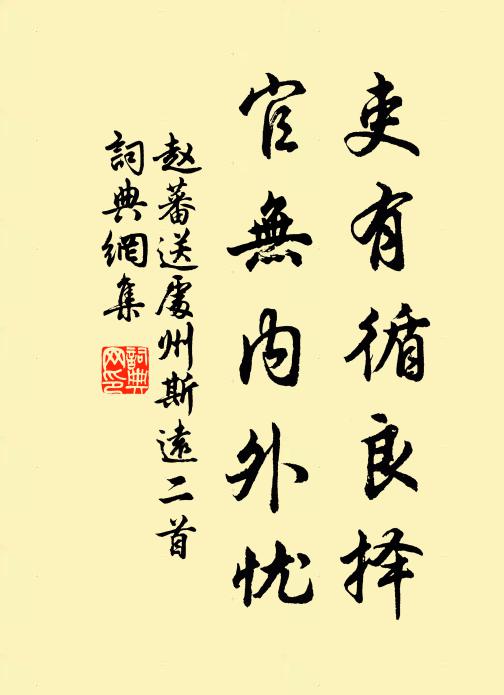 吏有循良择
官無内外忧
赵蕃送處州斯遠二首
詞典網集
詞典网印